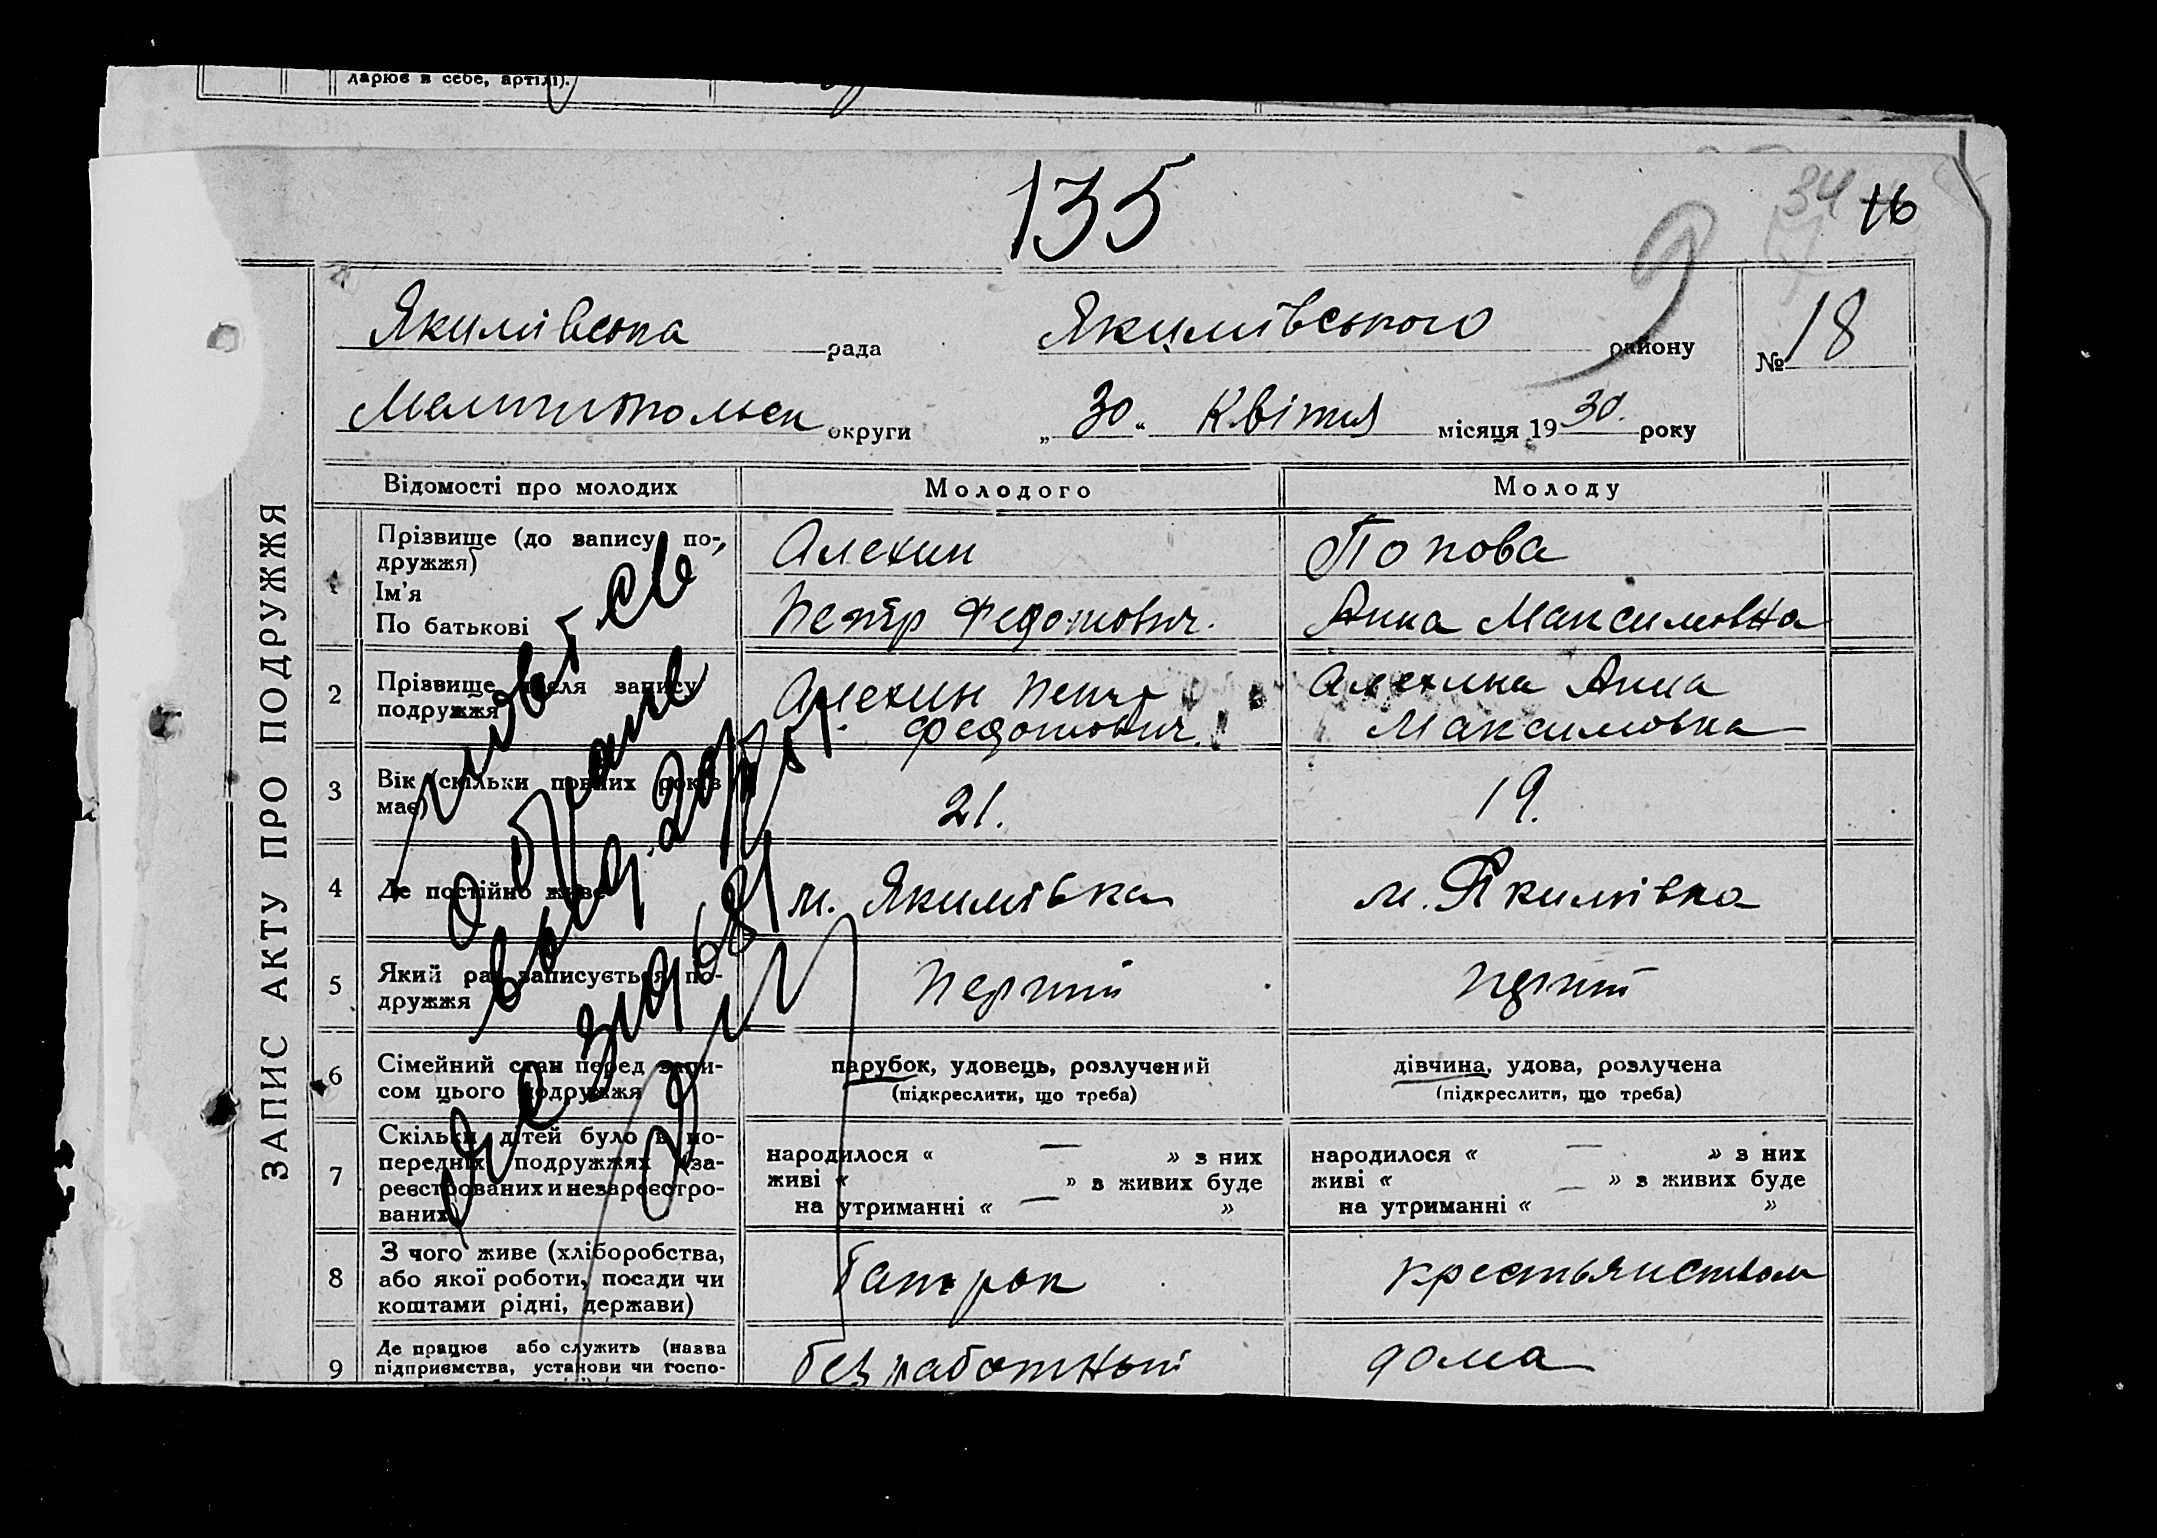 дарює в себе, артілі).
135
34 16
9
Якимівська рада Якимівського району № 18
Мелитопольск округи „30" Квітня місяця 1930. року
ЗАПИС АКТУ ПРО ПОДРУЖЖЯ
Відомості про молодих Молодого Молоду
1 Прізвище (до запису подружжя) Алехин Попова
Ім'я
По батькові Петр Федотович. Анна Максимовна
2 Прізвище після запису Алехин Петр Алехина Анна
подружжя Федотович. Максимовна
3 Вік (скільки повних років 21. 19.
має)
4 Де постійно живе м. Якимівка м. Якимівка
5 Який раз записується по-
дружжя Перший перший
6 Сімейний стан перед запи- парубок, удовець, розлучений дівчина, удова, розлучена
сом цього подружжя (підкреслити, що треба) (підкреслити, що треба)
7 Скільки дітей було в по-
передніх подружжях (за- народилося « — » з них народилося « — » з них
реєстрованих и незареєстро- живі « » з живих буде живі « » з живих буде
ваних) на утриманні « — » на утриманні « — »
8 З чого живе (хліборобства,
або якої роботи, посади чи Батрак крестьянством
коштами рідні, держави)
9 Де працює або служить (назва
підприємства, установи чи госпо- безработный дома